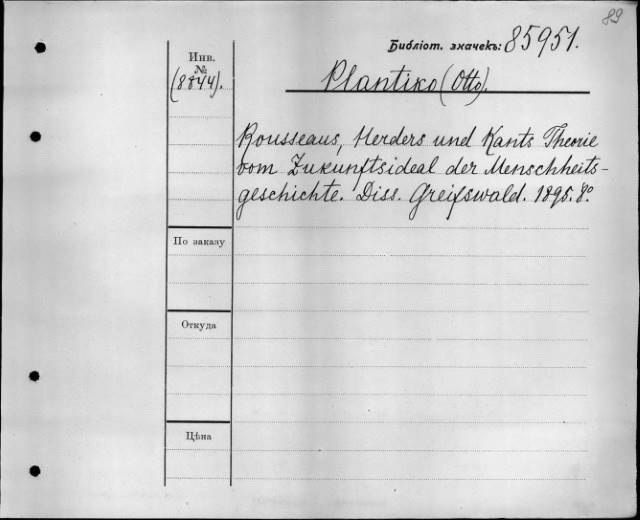 89
Библіот. значекъ: 85951.
Инв.
№
(8844).
Plantiko (Otto).
Rousseaus, Herders und Kants Theorie
vom Zukunftsideal der Menschheits-
geschichte. Diss. Greifswald. 1895. 8º
По заказу
Откуда
Цѣна